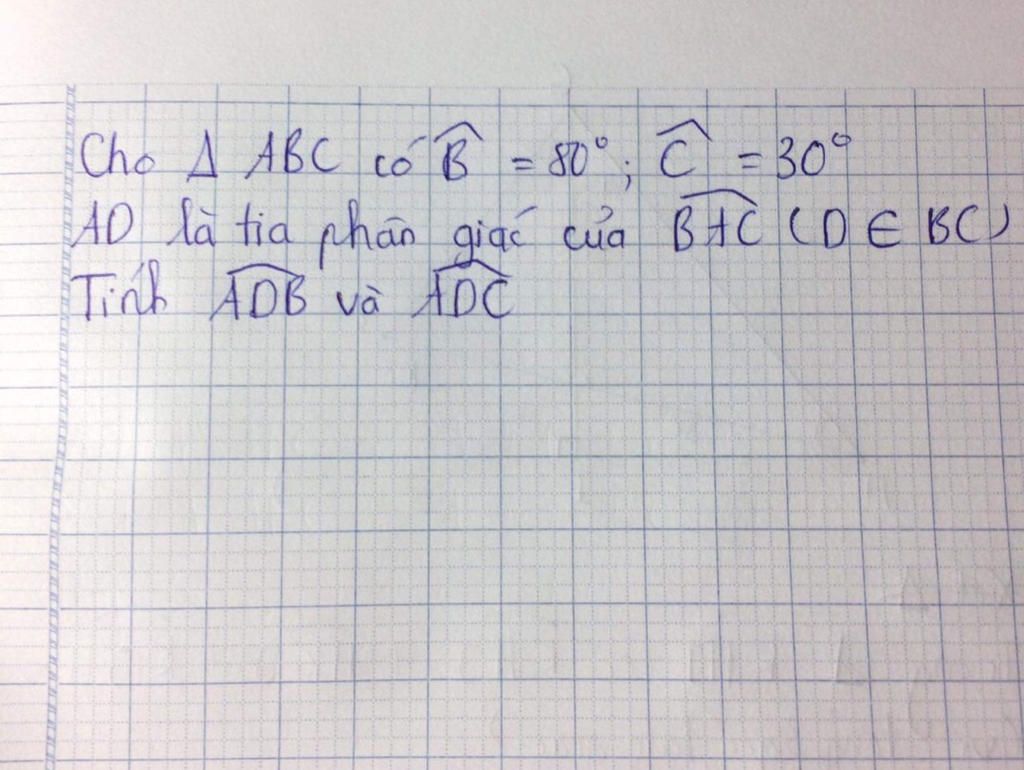 Cho Δ ABC có B̂ = 80°; Ĉ = 30°
AD là tia phân giác của B͡AC (D ∈ BC)
Tính A͡DB và A͡DC